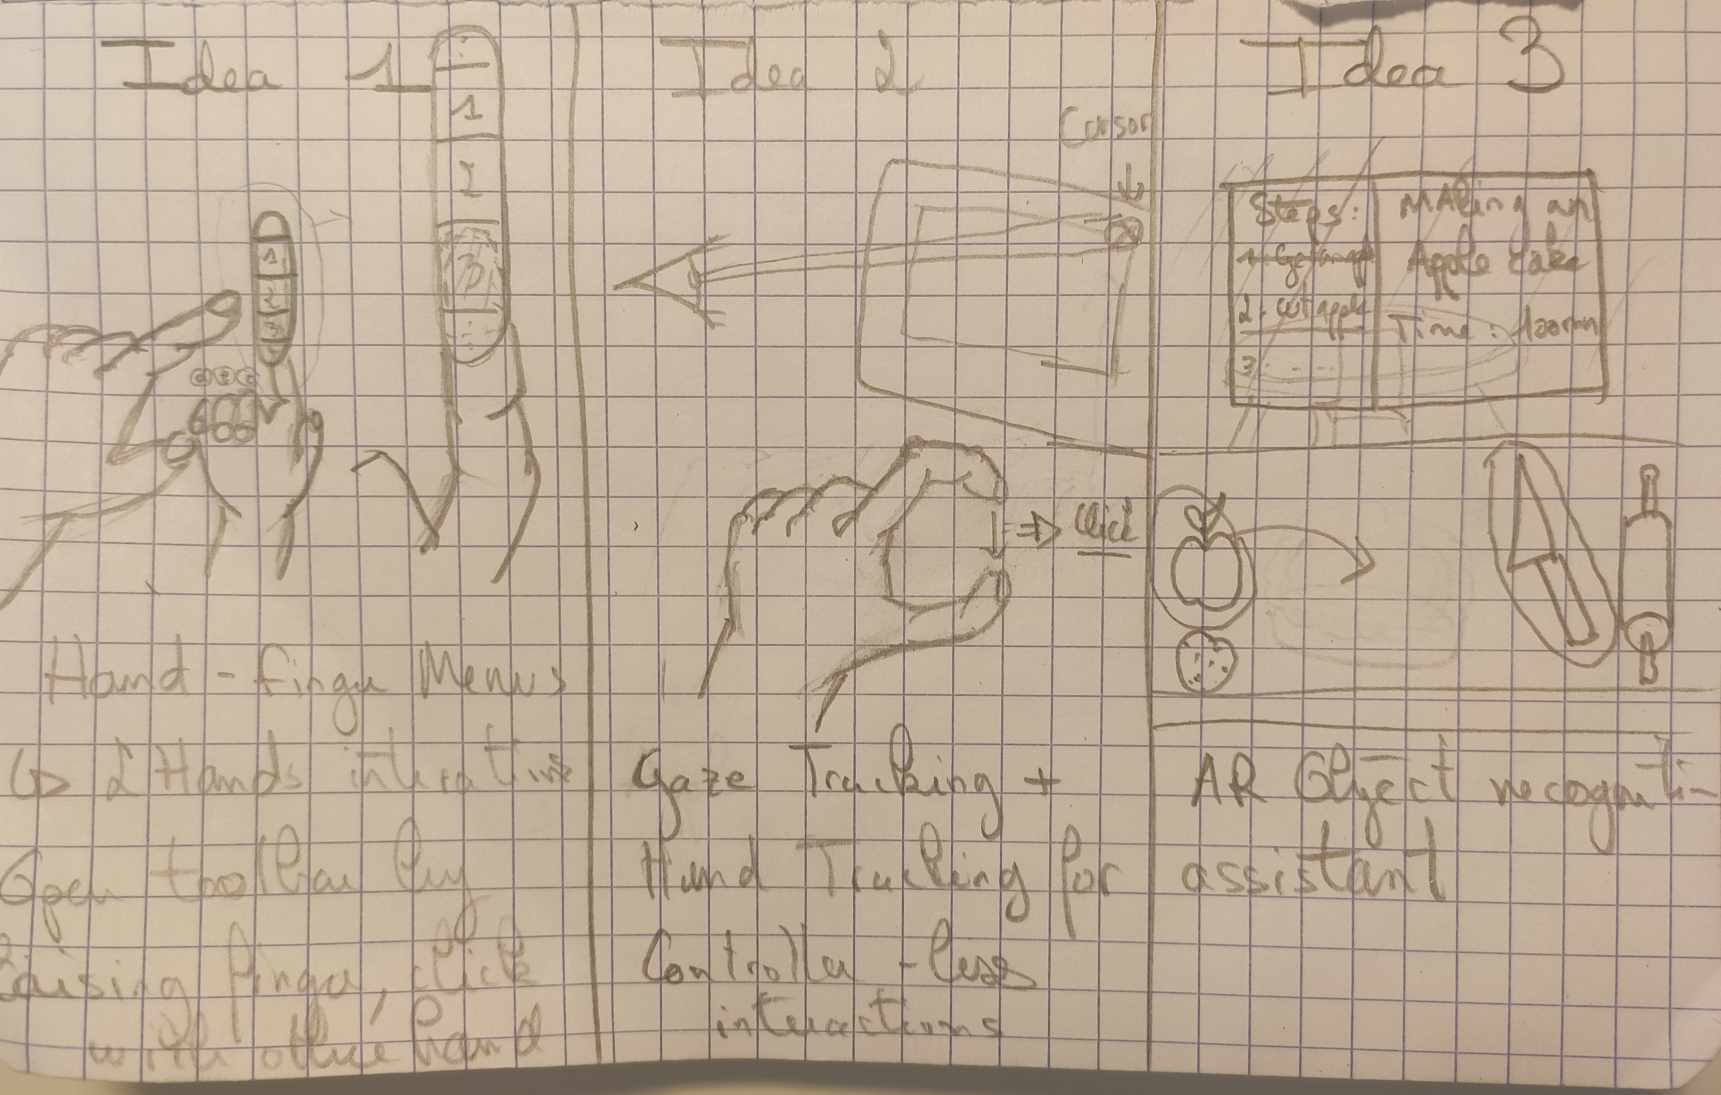 Idea 1
1
2
3
1
2
3
Hand-finger Menus
2 Hands interactive
Open toolbar by
Raising finger, click
with other hand
Idea 2
Cursor
click
Gaze Tracking +
Hand Tracking for
Controller-less
interactions
Idea 3
Steps:
2. Cut apple
3 ....
MAking an
Apple cake
Time:
AR Object recogniti-
assistant